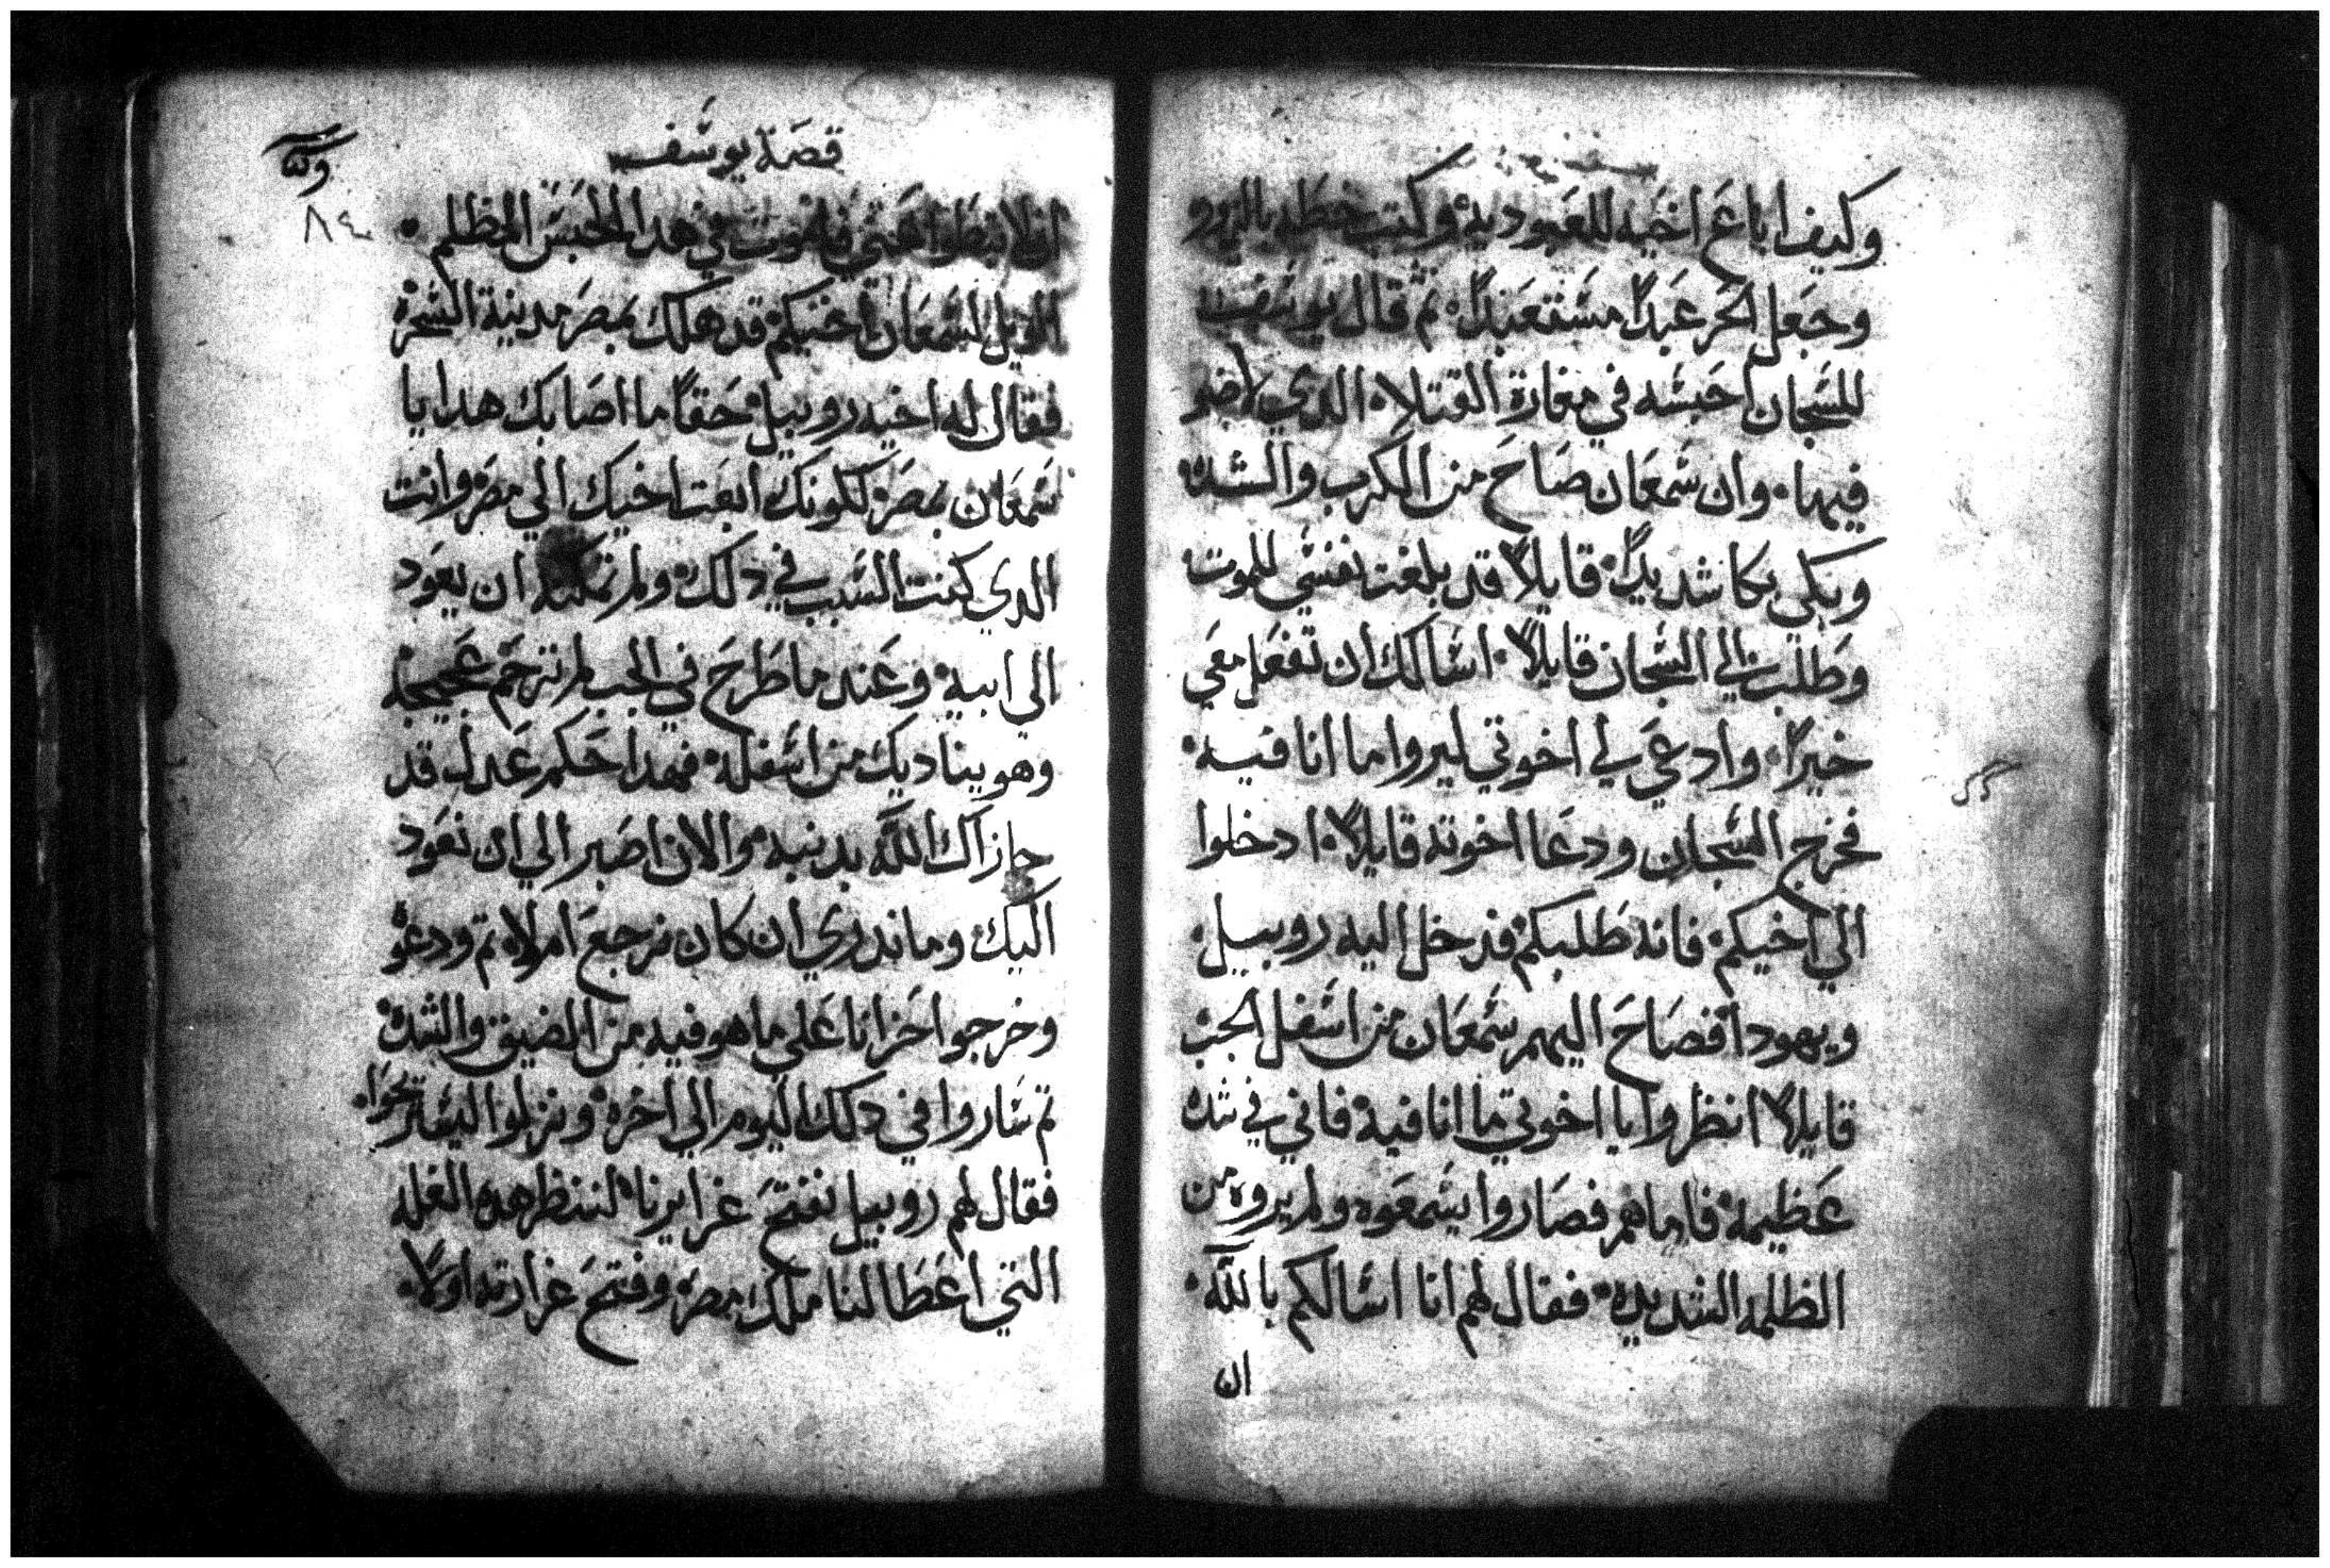 وكيف اباع اخيه للعبوديه وكتب خطه بالزور
وجعل الحر عبداً مستعبداً ثم قال يوسف
للسجان احبسه في مغارة القتلاه الدي لاضو
فيها وان شمعان صاح من الكرب والشده
وبكى بكا شديداً قايلاً قد بلغت نفسي للموت
وطلب الي السجان قايلاً اسالك ان تفعل معي
خيراً وادعي لي اخوتي ليروا ما انا فيه
فخرج السجان ودعا اخوته قايلاً ادخلوا
الي اخيكم فانه طلبكم فدخل اليه روبيل
ويهودا فصاح اليهم شمعان من اسفل الجب
قايلاً انظروا يا اخوتي ما انا فيه فاني في شده
عظيمه فاما هم فصاروا يسمعوه ولم يروه من
الظلمه الشديده فقال لهم انا اسالكم بالله
ان
قصة يوسف
٨٤
ان لا تبطوا عني في هدا الحبس المظلم
الويل لشمعان اخيكم قد هلك بمصر مدينة السحره
فقال له اخيه روبيل حقاً ما اصابك هدا يا
شمعان بمصر لكونك ابعت اخيك الي مصر وانت
الدي كنت السبب في دلك ولم تمكنه ان يعود
الي ابيه وعند ما طرح في الجب لم ترحم عجيجه
وهو يناديك من اسفله فهدا حكم عدل قد
جازاك الله بدنبه والان اصبر الي ان نعود
اليك وما ندري ان كان نرجع ام لا تم ودعو
وخرجوا حزانا علي ما هو فيه من الضيق والشده
تم ساروا في دلك اليوم الي اخره ونزلوا ليستريحوا
فقال لهم روبيل نفتح غرايرنا لننظر هده الغله
التي اعطا لنا ملك مصر وفتح غرارته اولاً